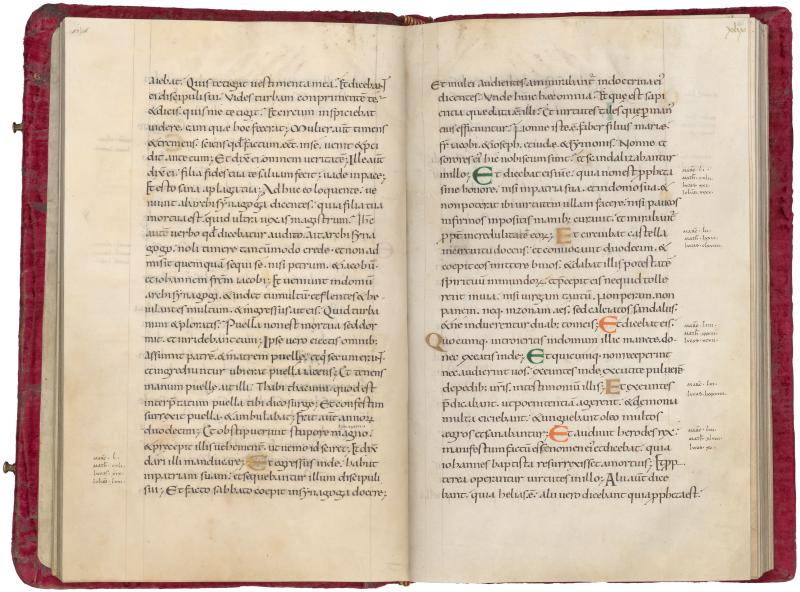 aiebat. Quis tetigit uestimenta mea. Et dicebant
ei discipuli sui. Vides turbam comprimentē te.
& dicis. quis me tetigit. Et circum inspiciebat
uidere. eam quae hoc fecerat; Mulier aut timens
& tremens. sciens qđ factum eēt inse. uenit & peci
dit ante eum; Et dixit ei omnem ueritatē; Ille aut
dixit ei. filia fides tua te saluam fecit; uade inpace;
et esto sana aplaga tua; Adhuc eo loquente. ue
niunt ab archisynagoga dicentes. quia filia tua
mortua est. quid ultra uexas magistrum. Ihs
aut uerbo qđ dicebatur audito. ait archisyna
gogo. noli timere tantummodo crede. et non ad
misit quemquam sequi se. nisi petrum. & iacobū
et iohannem frēm iacobi; Et ueniunt indomū
archisynagogi. & uidet tumultū et flentes & he
iulantes multum. & ingressus. ait eis. Quid turba
mini & ploratis. Puella non est mortua sed dor
mit. et inridebant eum; Ipse uero eiectis omnib;
assumit patrē. & matrem puellę. et qui secum erant;
et ingrediuntur ubi erat puella iacens; Et tenens
manum puellę. ait illi. Thabitha cumi. quod est
interptatum puella tibi dico surge; Et confestim
surrexit puella & ambulabat; Erat aut annorum
duodecim; Et obstipuerunt stupore magno.
& precepit illis uehement. ut nemo id sciret; Et dixit
dari illi manducare; Et egressus inde. habiit
inpatriam suam. et sequebantur illum discipuli
sui; Et facto sabbato coepit insynagoga docere;
Et multi audientes ammirabant indoctrina ei
dicentes. Vnde huic haec omnia. Et que est sapi
entia que data ē illi. Et uirtutes tales que p man
eius efficiuntur. Nonne iste ē faber filius marię.
fr iacobi. & ioseph. et iudę. & symonis. Nonne et
sorores ei hic nobiscum sunt. et scandalizabantur
inillo; Et dicebat eis ihs. quia non est ppheta
sine honore. nisi inpatria sua. et indomo sua &
non poterat ibi uirtutem ullam facere. nisi paucos
infirmos inpositis manib; curauit. et mirabatur
ppt incredulitatē eoꝝ; Et circuibat castella
incircuitu docens. et conuocauit duodecim. &
coepit eos mittere binos. & dabat illis potestatē
spirituum inmundoꝝ. et pcepit eis ne quid tolle
rent inuia. nisi uirgam tantū; Non peram. non
panem. neq; inzonam aes. sed calciatos sandaliis.
& ne induerentur duab; tunicis; Et dicebat eis.
Quocumq; introieritis indomum illic manete. do
nec exeatis inde; Et quicumq; non receperint
nec audierint uos. exeuntes inde excutite puluerē
depedib; uris. intestimoniū illis; Et exeuntes
pdicabant. ut poenitentiā agerent. & demonia
multa eiciebant. & unguebant oleo multos
aegros et sanabantur; Et audiuit herodes rex.
manifestum factū est enim nomen ei et dicebat. quia
iohannes baptista resurrexisset amortuis; Et pp
terea operantur uirtutes inillo; Alii aut dice
bant. quia helias ē. alii uero dicebant quia ppheta est.